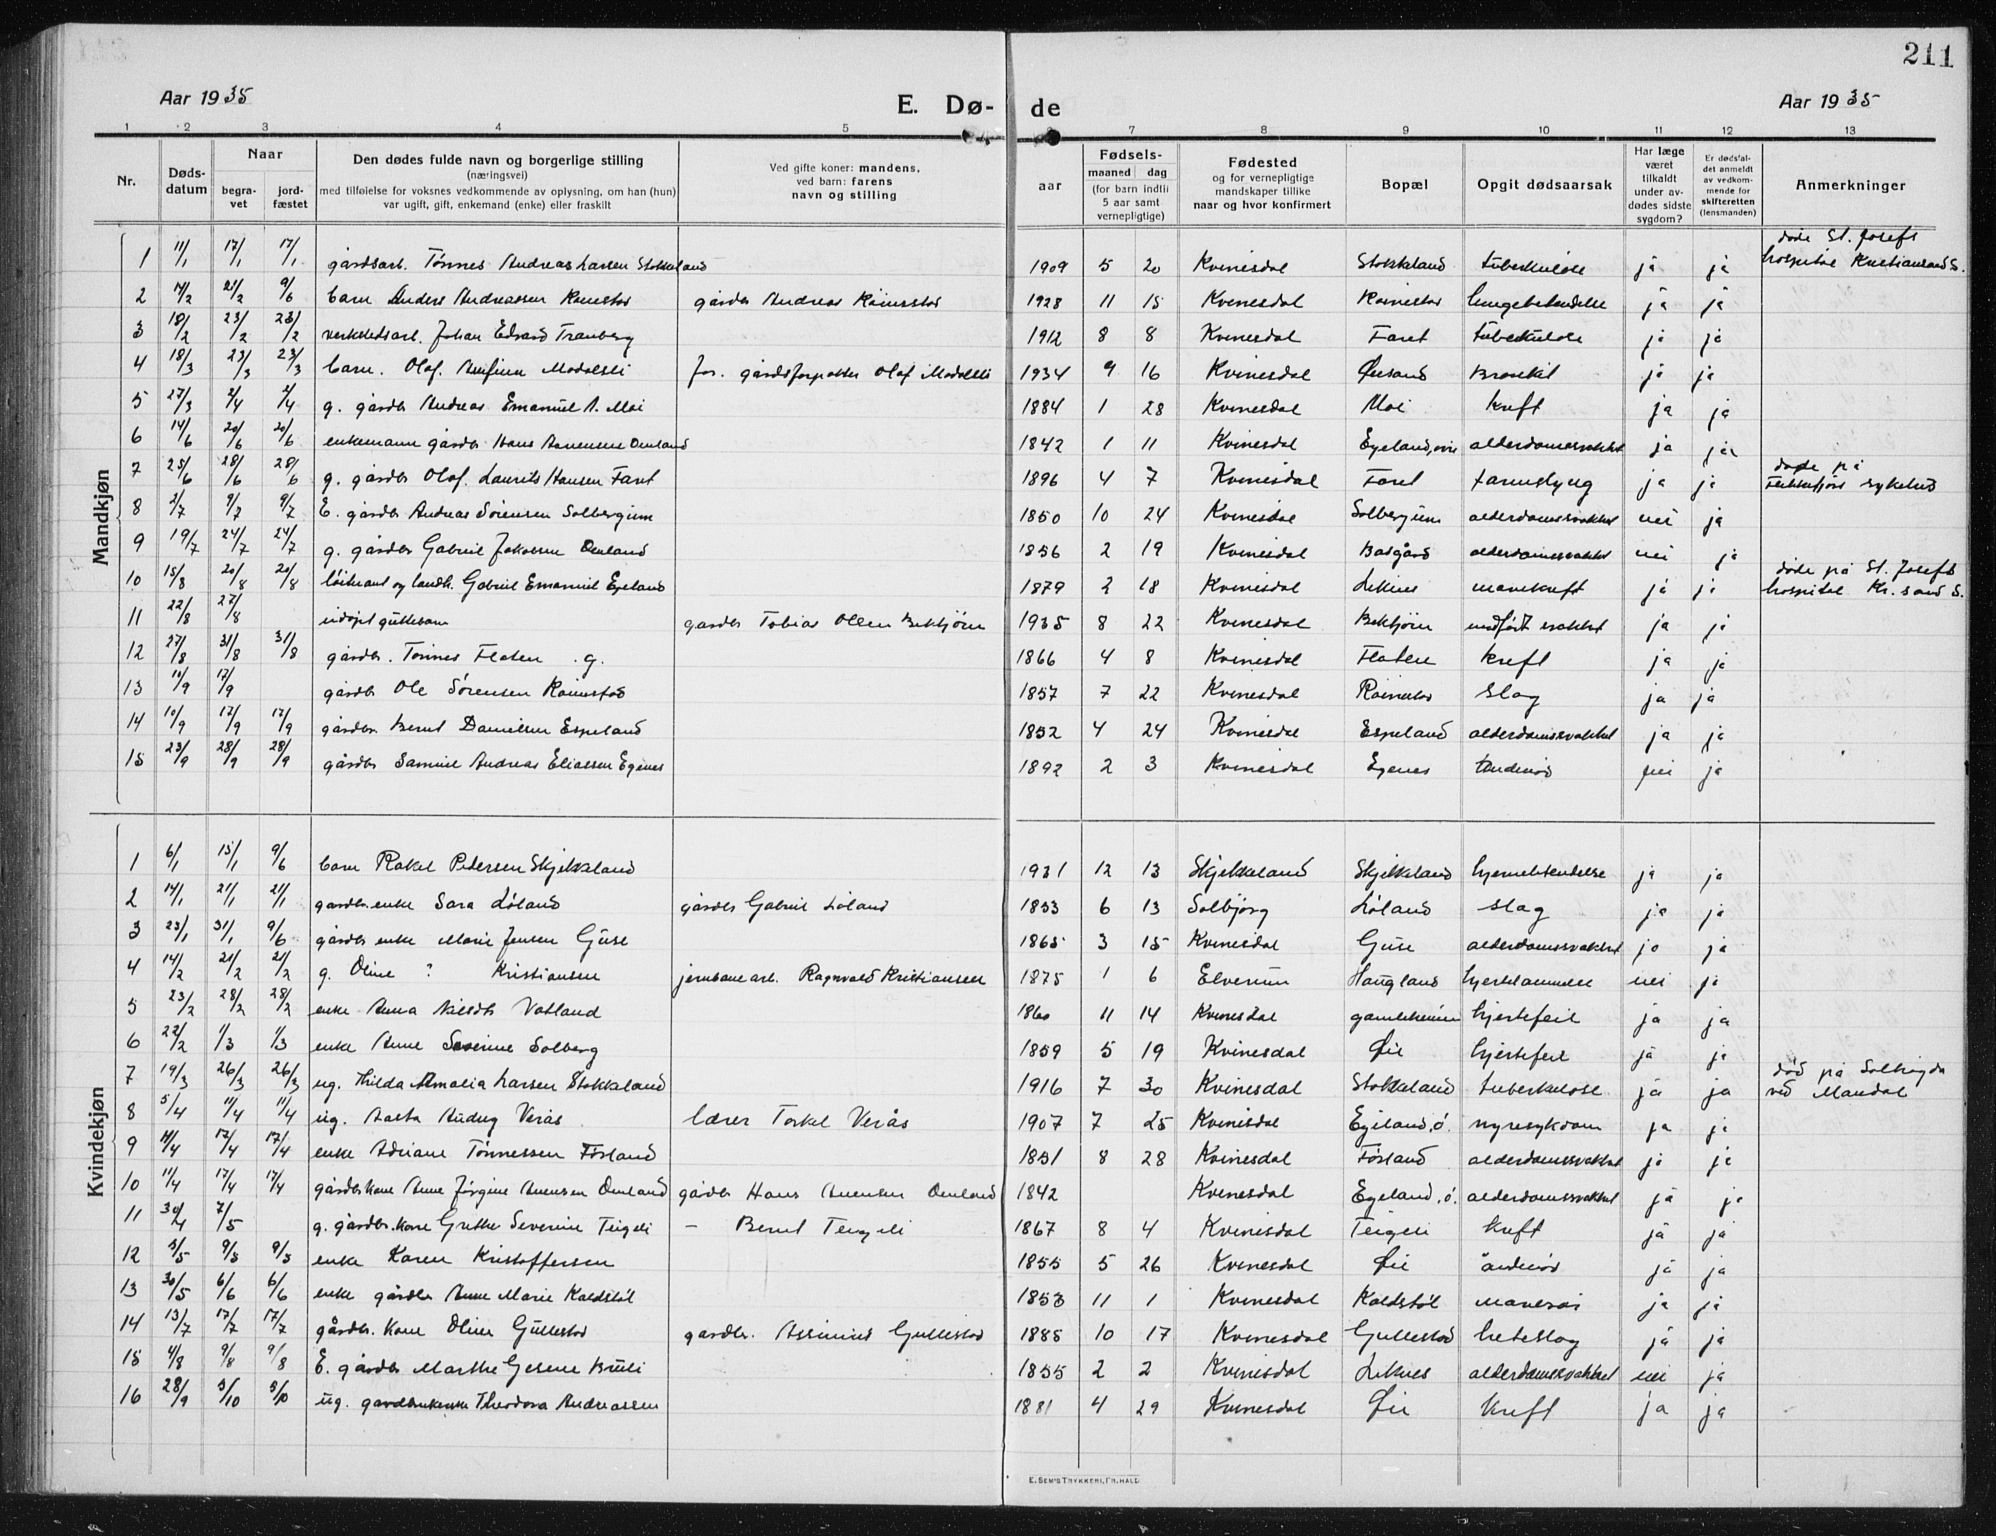 211
Aar 1935
E. Dø-
de
Aar 1935
1 2 3 4 5 6 7 8 9 10 11 12 13
Nr.
Døds-
datum
Naar
begra-
vet
jord-
fæstet
Den dødes fulde navn og borgerlige stilling
(næringsvei)
med tilføielse for voksnes vedkommende av oplysning, om han (hun)
var ugift, gift, enkemand (enke) eller fraskilt
Ved gifte koner: mandens,
ved barn: farens
navn og stilling
aar
Fødsels-
maaned dag
(for barn indtil
5 aar samt
vernepligtige)
Fødested
og for vernepligtige
mandskaper tillike
naar og hvor konfirmert
Bopæl
Opgit dødsaarsak
Har læge
været
tilkaldt
under av-
dødes sidste
sygdom?
Er dødsfal-
det anmeldt
av vedkom-
mende for
skifteretten
(lensmanden)
Anmerkninger
Mandkjøn
1 11/1 17/1 17/1 gårdsarb. Tønnes Andreas Larsen Stokkeland 1909 5 20 Kvinesdal Stokkeland tuberkulose ja ja døde St. Josefs
hospital Kristiansand S.
2 14/2 21/2 9/6 barn Anders Andreassen gårdbr Andreas 1928 11 15 Kvinesdal ja ja
3 18/2 23/2 23/2 verkstedsarb. Johan Edvard Tranberg 1912 8 8 Kvinesdal Faret tuberkulose ja ja
4 18/3 23/3 23/3 barn. Olaf. Anfinn Modalsli for. gårdsforpakter Olaf Modalsli 1934 9 16 Kvinesdal Øiesand ja ja
5 27/3 2/4 2/4 g. gårdbr Andreas Emanuel A. Moi 1884 1 28 Kvinesdal Moi kreft ja ja
6 14/6 20/6 20/6 enkemann gårdbr Hans Omland 1842 1 11 Kvinesdal Egeland, alderdomssvakhet ja ja
7 25/6 28/6 28/6 g. gårdbr Olaf. Laurits Hansen Faret 1896 4 7 Kvinesdal Faret tarmslyng ja ja døde på
Flekkefjord sykehus
8 2/7 9/7 9/7 E. gårdbr Andreas Sørensen 1850 10 24 Kvinesdal alderdomssvakhet nei ja
9 19/7 24/7 24/7 g. gårdbr Gabriel Jakobsen Omland 1856 2 19 Kvinesdal alderdomssvakhet nei ja
10. 15/8 20/8 20/8 løitnant og landh. Gabriel Emanuel Egeland 1879 2 18 Kvinesdal Liknes mavekreft ja ja døde på St. Josefs
hospital Kr. sand S.
11 22/8 27/8 udøpt guttebarn gårdbr Tobias Olsen 1935 8 22 Kvinesdal medfødt svakhet ja ja
12 27/8 31/8 31/8 gårdbr. Tønnes Flaten . g. 1866 4 8 Kvinesdal Flaten kreft ja ja
13 11/9 17/9 gårdbr Ole Sørensen 1857 7 22 Kvinesdal slag ja ja
14 10/9 17/9 17/9 gårdbr. Bernt Danielsen Espeland 1852 4 24 Kvinesdal Espeland alderdomssvakhet ja ja
15 23/9 28/9 28/9 gårdbr Samuel Andreas Eliassen Egenes 1892 2 3 Kvinesdal Egenes nei ja
Kvindekjøn
1 6/1 15/1 9/6 barn Rakel Pedersen Skjekkeland 1931 12 13 Skjekkeland Skjekkeland hjernebetendelse ja ja
2 14/1 21/1 21/1 gårdbr. enke Sara Løland gårdbr Gabriel Løland 1853 6 13 Solbjørg Løland slag ja ja
3 23/1 31/1 9/6 gårdbr enke Marie Jensen Gjuse 1865 3 15 Kvinesdal Gjuse alderdomssvakhet ja ja
4 14/2 21/2 21/2 g. Oline ? Kristiansen jernbanearb. Ragnvald Kristiansen 1875 1 6 Elverum Haugland hjertelammelse nei ja
5 23/2 28/2 28/2 enke Anna Nilsdtr Vatland 1860 11 14 Kvinesdal gamleheim hjertefeil ja ja
6 22/2 1/3 1/3 enke Anne Severine Solberg 1859 5 19 Kvinesdal Øie hjertefeil ja ja
7 19/3 26/3 26/3 ug. Hilda Amalia Larsen Stokkeland 1916 7 30 Kvinesdal Stokkeland tuberkulose ja ja død på Solhøgda
ved Mandal
8 5/4 11/4 11/4 ug. Aasta Audny Verås lærer Torkel Verås 1907 7 25 Kvinesdal Egeland, ø. nyresykdom ja ja
9 11/4 17/4 17/4 enke Adriane Tønnessen Førland 1851 8 28 Kvinesdal Førland alderdomssvakhet ja ja
10 11/4 17/4 17/4 gårdbr kone Anne Jørgine Omland gårdbr Hans Omland 1842 Kvinesdal Egeland, ø. alderdomssvakhet ja ja
11 30/4 7/5 g. gårdbr. kone Grethe Severine Teigeli - Bernt Teigeli 1867 8 4 Kvinesdal Teigeli kreft ja ja
12 5/5 9/5 9/5 enke Karen Kristoffersen 1855 5 26 Kvinesdal Øie åndenød ja ja
13 30/5 6/6 6/6 enke gårdbr Anne Marie Kaldstøl 1853 11 1 Kvinesdal Kaldstøl mavesår ja ja
14 13/7 17/7 17/7 gårdbr. kone Oline Gullestad gårdbr. Gullestad 1885 10 17 Kvinesdal Gullestad heteslag ja ja
15 4/8 9/8 9/8 E. gårdbr Marthe Gesene 1855 2 2 Kvinesdal Liknes alderdomssvakhet nei ja
16 28/9 5/10 5/10 ug. Theodora Andreassen 1881 4 29 Kvinesdal Øie kreft ja ja
E. SEM'S TRYKKERI, FR.HALD